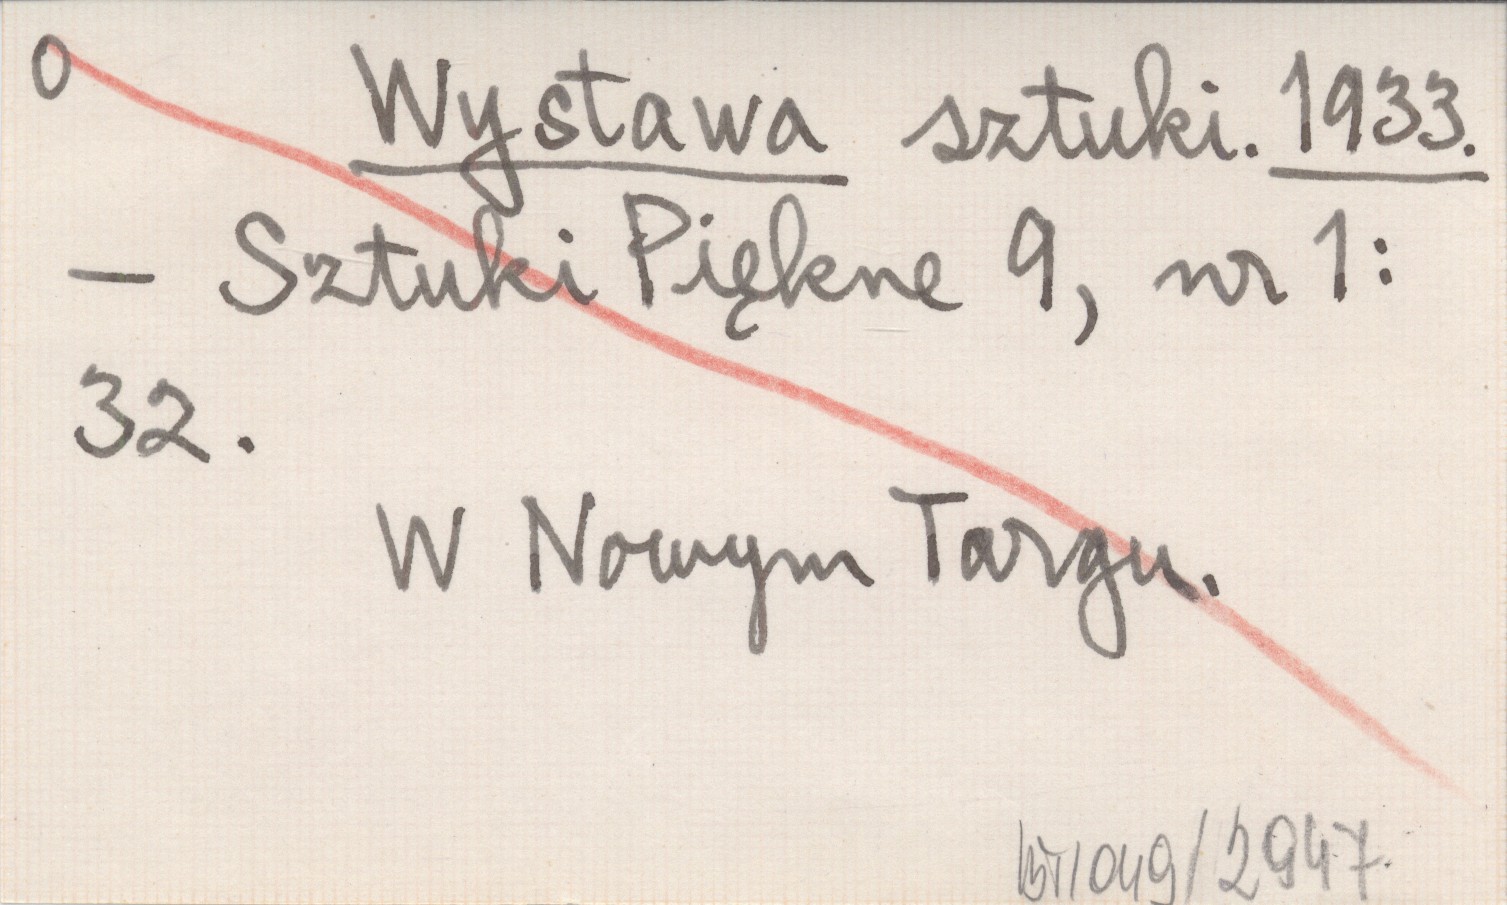 0 Wystawa sztuki. 1933.
— Sztuki Piękne 9, nr 1:
32.
W Nowym Targu.
/049/2947.